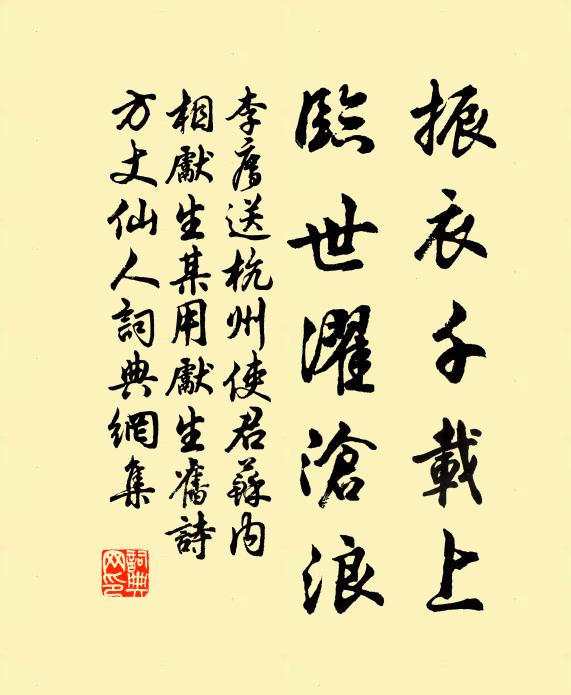 振衣千載上
臨世濯滄浪
李廌送杭州使君蘇內
相獻生某用獻生舊詩
方丈仙人詞典網集
詞典
网印